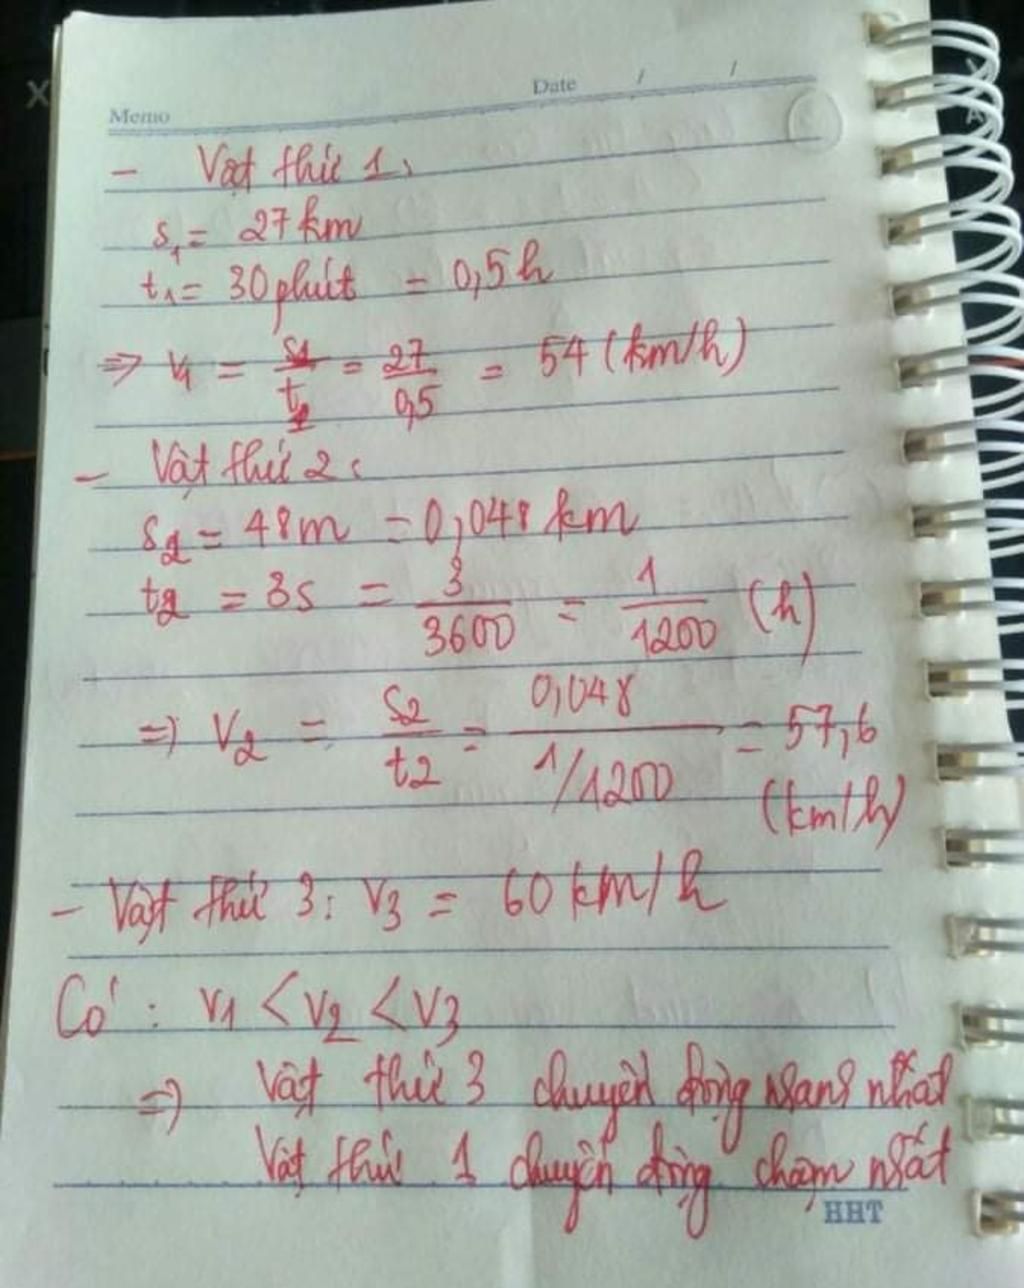 Memo Date / /
- Vật thứ 1:
s₁ = 27 km
t₁ = 30 phút = 0,5 h
=> v₁ = s₁/t₁ = 27/0,5 = 54 (km/h)
- Vật thứ 2:
s₂ = 48m = 0,048 km
t₂ = 3s = 3/3600 = 1/1200 (h)
=> V₂ = S₂/t₂ = 0,048/1/1200 = 57,6
(km/h)
- Vật thứ 3: V₃ = 60 km/h
Có : v₁ < v₂ < v₃
=> Vật thứ 3 chuyển động nhanh nhất
Vật thứ 1 chuyển động chậm nhất
HHT